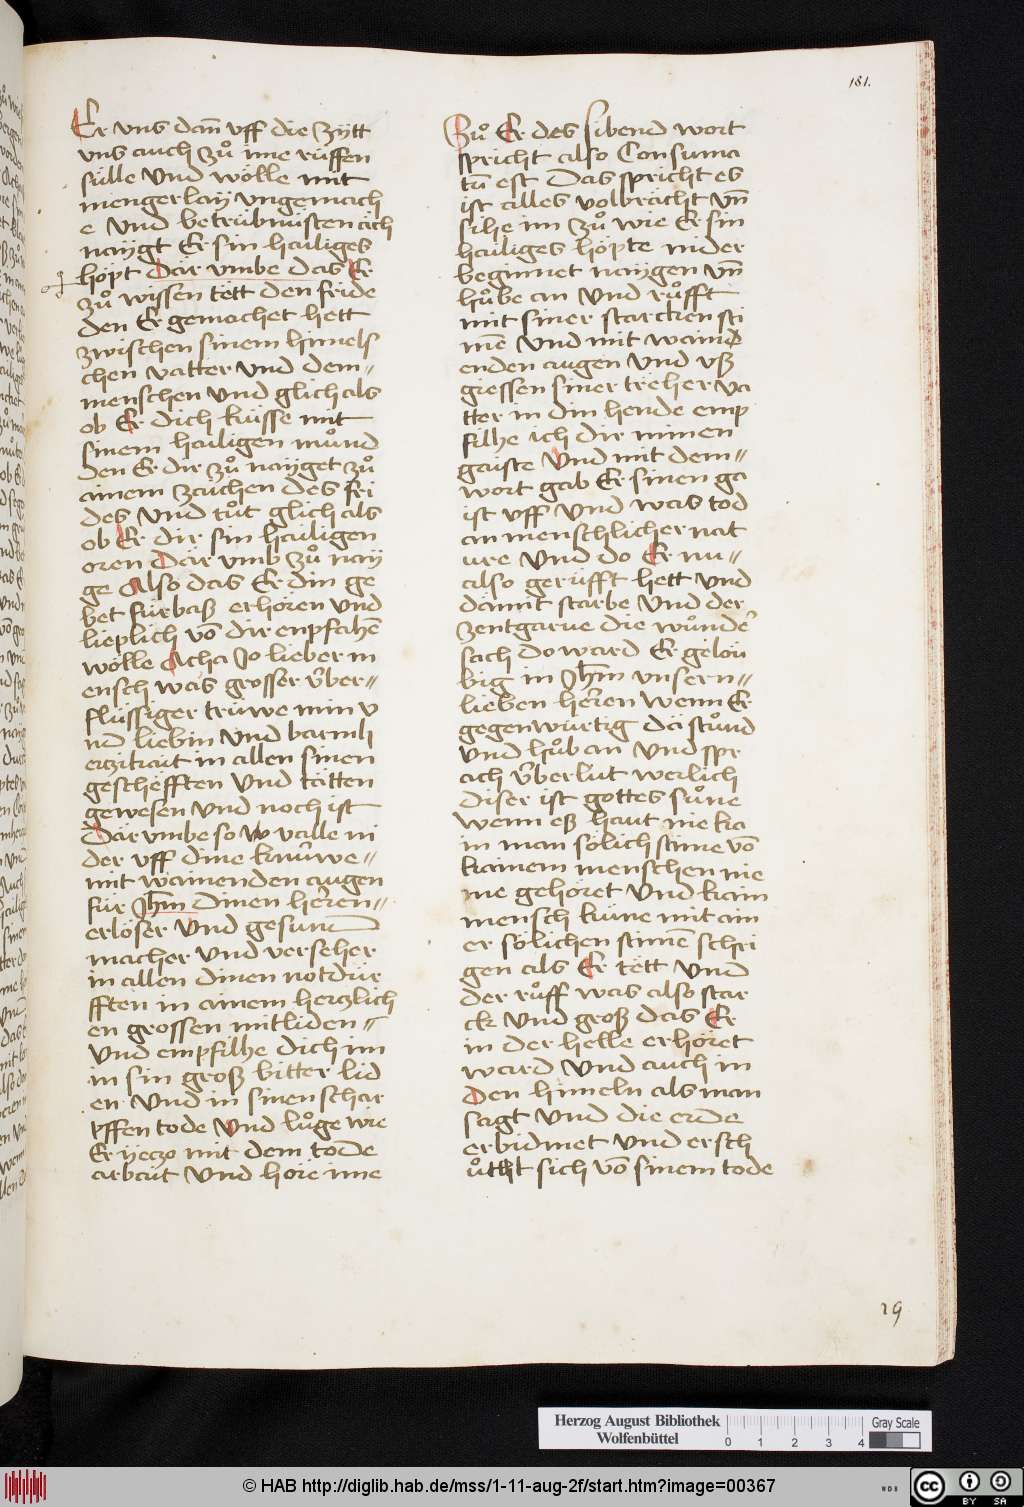 181.
Er vns dañ vff die zÿtt
vns auch zů ime růffen
sülle vnd wölle mit
mengerlaÿ vngemach
e vnd betrübnüsten äch
naÿgt Er sin hailiges
höpt Där vmbe das Er
zů wissen tëtt den fride
den Er gemachet hett
zwischen sinem himels
chen vatter vnd dem-
menschen vnd glich als
ob Er dich küsse mit
sinem hailigen můnd
den Er dir zů naÿget zů
ainem zaichen des fri
des vnd tůt glich als
ob Er dir sin hailigen
oren Där vmb zů naÿ
ge Also das Er din ge
bet fürbaß erhören vnd
lieplich võ dir enpfahẽ
wölle Acha Jo lieber m
ensch was grosser v̈ber-
flüssiger trüwe min v
nd liebin vnd barmh
ertzikait in allen sinen
geschëfften vnd tätten
gewesen vnd noch ist
Där vmbe so valle ni
der vff dine knüwe-
mit wainenden augen
für Jhm dinen herren-
erlöser vnd gesunt
macher vnd verseher
in allen dinen notdür
fften in ainem hertzlich
en grossen mitliden-
vnd empfilhe dich im
in sin groß bitter lid
en vnd in sinen schar
pffen tode vnd lůge wie
Er yeczo mit dem tode
arbait vnd höre ime
Zů Er des sibend wort
spricht also Consuma
tũ est Das spricht es
ist alles volbrächt vñ
sihe im zů wie Er sin
hailiges höpte nider
beginnet naÿgen vñ
hůbe an vnd růfft
mit siner starcken sti
me vnd mit wain
enden augen vnd vß
giessen siner treher va
tter in din hende emp
filhe ich dir minen
gaiste vnd mit dem-
wort gab Er sinen ga
ist vff vnd was tod
an menschlicher nat
ure vnd do Er nu-
also gerüfft hett vnd
dämit starbe vnd der
zentgarue die wůnder
sach do ward Er gelöu
big in Jhm vnsern-
lieben herren wenn Er
gegenwürtig dä stůnd
vnd hůb an vnd spr
ach v̈berlut werlich
diser ist gottes sůne
wenn eß haut nie ka
in man sölich stime võ
kainem menschen nie
me gehöret vnd kain
mensch küne mit ain
er sölichen stimẽ schri
gen als Er tëtt vnd
der růff was also star
ck vnd groß das Er
in der helle erhöret
ward vnd auch in
den himeln als man
sagt vnd die erde
erbidmet vnd ersch
ůtht sich võ sinem tode
19
Herzog August Bibliothek
Wolfenbüttel
0 1 2 3 4
Gray Scale
© HAB http://diglib.hab.de/mss/1-11-aug-2f/start.htm?image=00367
WDB
cc BY SA